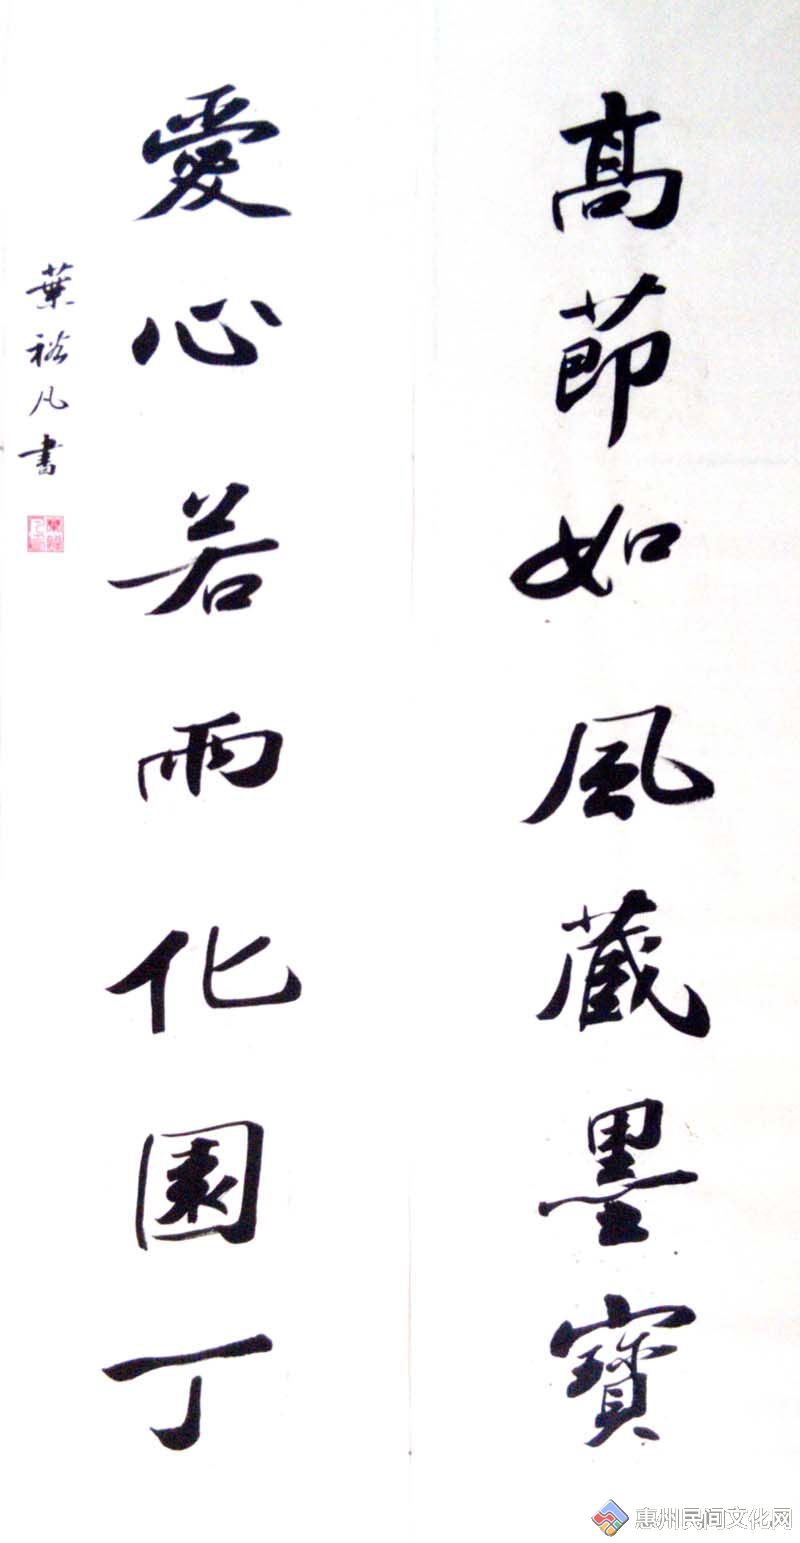 高節如風藏墨寶
愛心若雨化園丁
葉裕凡書
惠州民间文化网